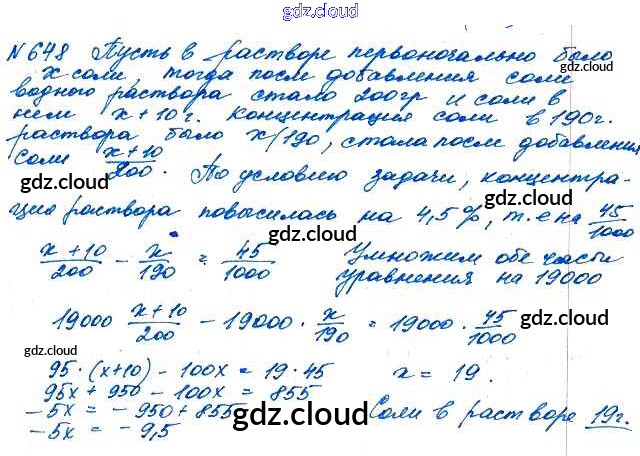 gdz.cloud
N 648 Пусть в растворе первоночально было
x соли, тогда посл добавления соли
gdz.cloud
водного раствора стало 200гр и соли в
нем x+10 г. Концентрация соли в 190г.
раствора было x/190, стала после добавления
соли (x+10)/200. По условию задачи, концентра-
gdz.cloud
gdz.cloud
ция раствора повысилась на 4,5%, т.е на 45/1000
gdz.cloud
(x+10)/200 - x/190 = 45/1000 Умножим обе часы
уравнения на 19000
gdz.cloud
19000 (x+10)/200 - 19000 · x/190 = 19000 · 45/1000
gdz.cloud
gdz.cloud
95·(x+10) - 100x = 19·45 x = 19.
95x + 950 - 100x = 855
-5x = -950 + 855 Соли в растворе 19г.
gdz.cloud
gdz.cloud
-5x = -9,5